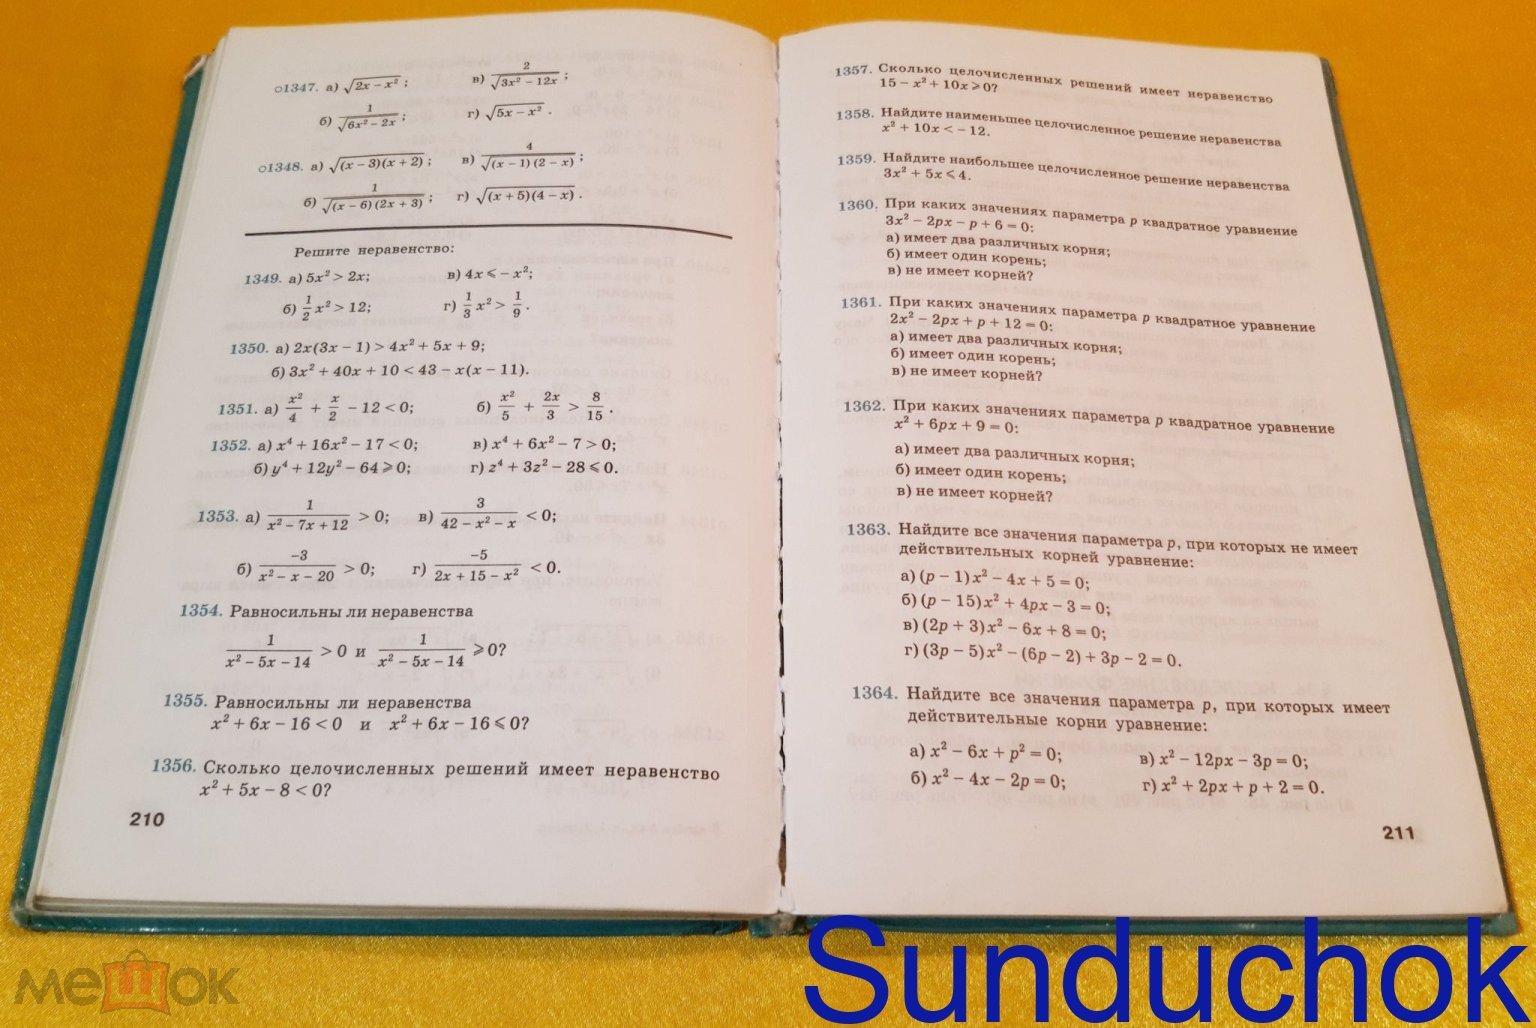 1347. а) √(2x − x²);  в) 2/√(3x² − 12x);
б) 1/√(6x² − 2x);  г) √(5x − x²).
1348. а) √((x − 3)(x + 2));  в) 4/√((x − 1)(2 − x));
б) 1/√((x − 6)(2x + 3));  г) √((x + 5)(4 − x)).
Решите неравенство:
1349. а) 5x² > 2x;  в) 4x ⩽ − x²;
б) 1/2 x² > 12;  г) 1/3 x² > 1/9.
1350. а) 2x(3x − 1) > 4x² + 5x + 9;
б) 3x² + 40x + 10 < 43 − x(x − 11).
1351. а) x²/4 + x/2 − 12 < 0;  б) x²/5 + 2x/3 > 8/15.
1352. а) x⁴ + 16x² − 17 < 0;  в) x⁴ + 6x² − 7 > 0;
б) y⁴ + 12y² − 64 ⩾ 0;  г) z⁴ + 3z² − 28 ⩽ 0.
1353. а) 1/(x² − 7x + 12) > 0;  в) 3/(42 − x² − x) < 0;
б) −3/(x² − x − 20) > 0;  г) −5/(2x + 15 − x²) < 0.
1354. Равносильны ли неравенства
1/(x² − 5x − 14) > 0 и 1/(x² − 5x − 14) ⩾ 0?
1355. Равносильны ли неравенства
x² + 6x − 16 < 0 и x² + 6x − 16 ⩽ 0?
1356. Сколько целочисленных решений имеет неравенство
x² + 5x − 8 < 0?
210
1357. Сколько целочисленных решений имеет неравенство
15 − x² + 10x ⩾ 0?
1358. Найдите наименьшее целочисленное решение неравенства
x² + 10x < − 12.
1359. Найдите наибольшее целочисленное решение неравенства
3x² + 5x ⩽ 4.
1360. При каких значениях параметра p квадратное уравнение
3x² − 2px − p + 6 = 0:
а) имеет два различных корня;
б) имеет один корень;
в) не имеет корней?
1361. При каких значениях параметра p квадратное уравнение
2x² − 2px + p + 12 = 0:
а) имеет два различных корня;
б) имеет один корень;
в) не имеет корней?
1362. При каких значениях параметра p квадратное уравнение
x² + 6px + 9 = 0:
а) имеет два различных корня;
б) имеет один корень;
в) не имеет корней?
1363. Найдите все значения параметра p, при которых не имеет
действительных корней уравнение:
а) (p − 1)x² − 4x + 5 = 0;
б) (p − 15)x² + 4px − 3 = 0;
в) (2p + 3)x² − 6x + 8 = 0;
г) (3p − 5)x² − (6p − 2) + 3p − 2 = 0.
1364. Найдите все значения параметра p, при которых имеет
действительные корни уравнение:
а) x² − 6x + p² = 0;  в) x² − 12px − 3p = 0;
б) x² − 4x − 2p = 0;  г) x² + 2px + p + 2 = 0.
211
мешок
Sunduchok